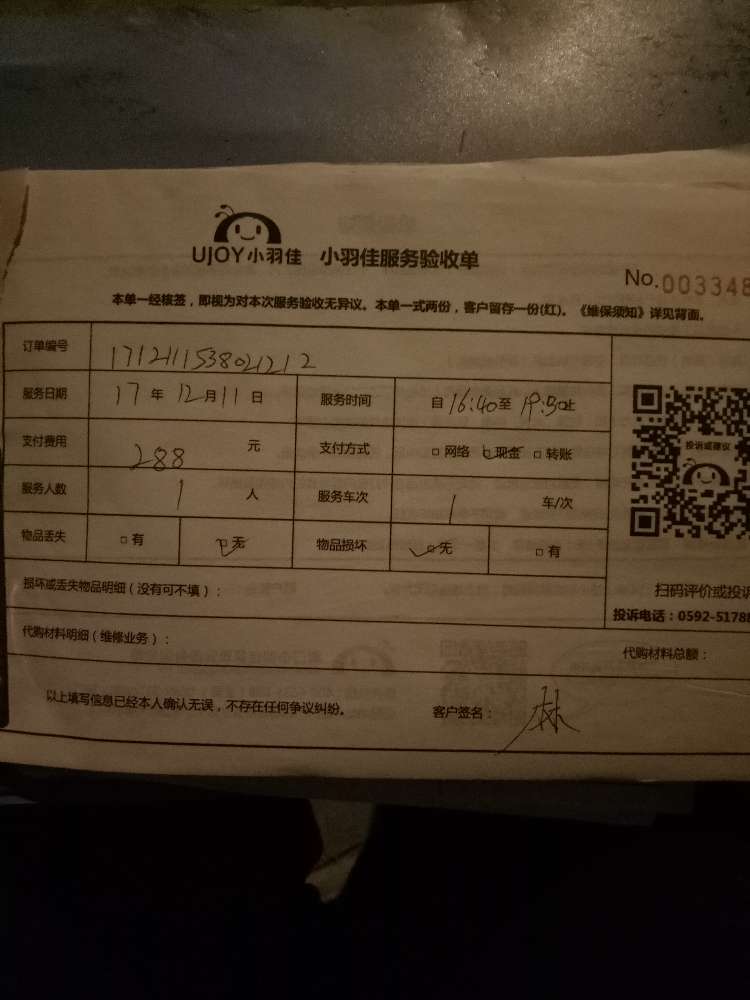 UJOY小羽佳 小羽佳服务验收单
No.003348
本单一经核签，即视为对本次服务验收无异议。本单一式两份，客户留存一份(红)。《维保须知》详见背面。
订单编号 1712111538021212
服务日期 17年12月11日 服务时间 自16:40至19:50止
支付费用 288元 支付方式 □网络 □现金 □转账
服务人数 1人 服务车次 1车/次
物品丢失 □有 □无 物品损坏 □无 □有
投诉或建议
损坏或丢失物品明细（没有可不填）：
扫码评价或投诉
投诉电话：0592-5178
代购材料明细（维修业务）：
代购材料总额：
以上填写信息已经本人确认无误，不存在任何争议纠纷。 客户签名： 林